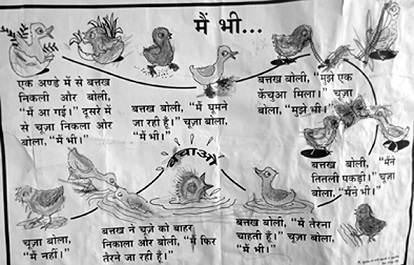 मैं भी...
एक अण्डे में से बत्तख
निकली ओर बोली,
"मैं आ गई।" दूसरे में
से चूज़ा निकला ओर
बोला, "मैं भी।"
बत्तख बोली, "मैं घूमने
जा रही हूँ।" चूज़ा बोला,
"मैं भी।"
बत्तख बोली, "मुझे एक
केंचुआ मिला।" चूज़ा
बोला, "मुझे भी।"
बत्तख बोली, "मैंने
तितली पकड़ी।" चूज़ा
बोला, "मैंने भी।"
बत्तख बोली, "मैं तैरना
चाहती हूँ।" चूज़ा बोला,
"मैं भी।"
बचाओ
बत्तख ने चूज़े को बाहर
निकाला ओर बोली, "मैं फिर
तैरने जा रही हूँ।"
चूज़ा बोला,
"मैं नहीं।"